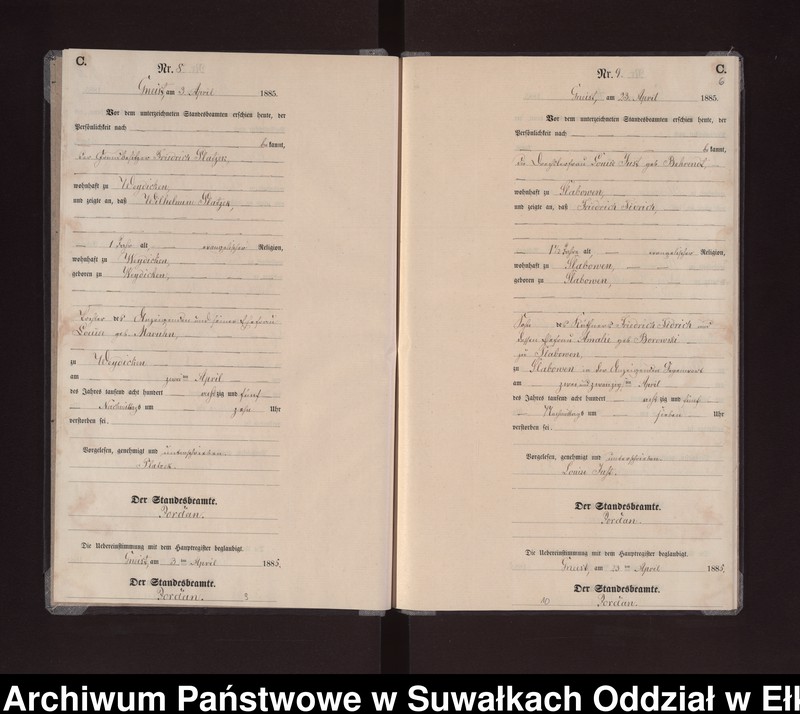 C.
Nr. 8
am 3. April 1885.
Vor dem unterzeichneten Standesbeamten erschien heute, der
Persönlichkeit nach
bekannt,
der Friedrich
wohnhaft zu Weydicken,
und zeigte an, daß Wilhelmine
1 Jahr alt evangelischer Religion,
wohnhaft zu Weydicken,
geboren zu Weydicken,
Tochter des Anzeigenden und seiner Ehefrau
Louise geb.
zu Weydicken
am zweiten April
des Jahres tausend acht hundert achtzig und fünf
Nachmittags um zehn Uhr
verstorben sei.
Vorgelesen, genehmigt und unterschrieben
Der Standesbeamte.
Jordan.
Die Uebereinstimmung mit dem Hauptregister beglaubigt.
am 3ten April 1885.
Der Standesbeamte.
Jordan.
C.
6
Nr. 9.
am 23. April 1885.
Vor dem unterzeichneten Standesbeamten erschien heute, der
Persönlichkeit nach
bekannt,
die Louise geb.
wohnhaft zu Slabowen,
und zeigte an, daß Friedrich
1½ Jahre alt evangelischer Religion,
wohnhaft zu Slabowen,
geboren zu Slabowen,
Sohn des Friedrich und
dessen Ehefrau Amalie geb. Borowski
zu Slabowen,
zu Slabowen in der Anzeigenden Gegenwart
am zwei und zwanzigsten April
des Jahres tausend acht hundert achtzig und fünf
Nachmittags um sieben Uhr
verstorben sei.
Vorgelesen, genehmigt und unterschrieben
Louise
Der Standesbeamte.
Jordan.
Die Uebereinstimmung mit dem Hauptregister beglaubigt.
am 23ten April 1885.
Der Standesbeamte.
Jordan.
Archiwum Państwowe w Suwałkach Oddział w Ełk